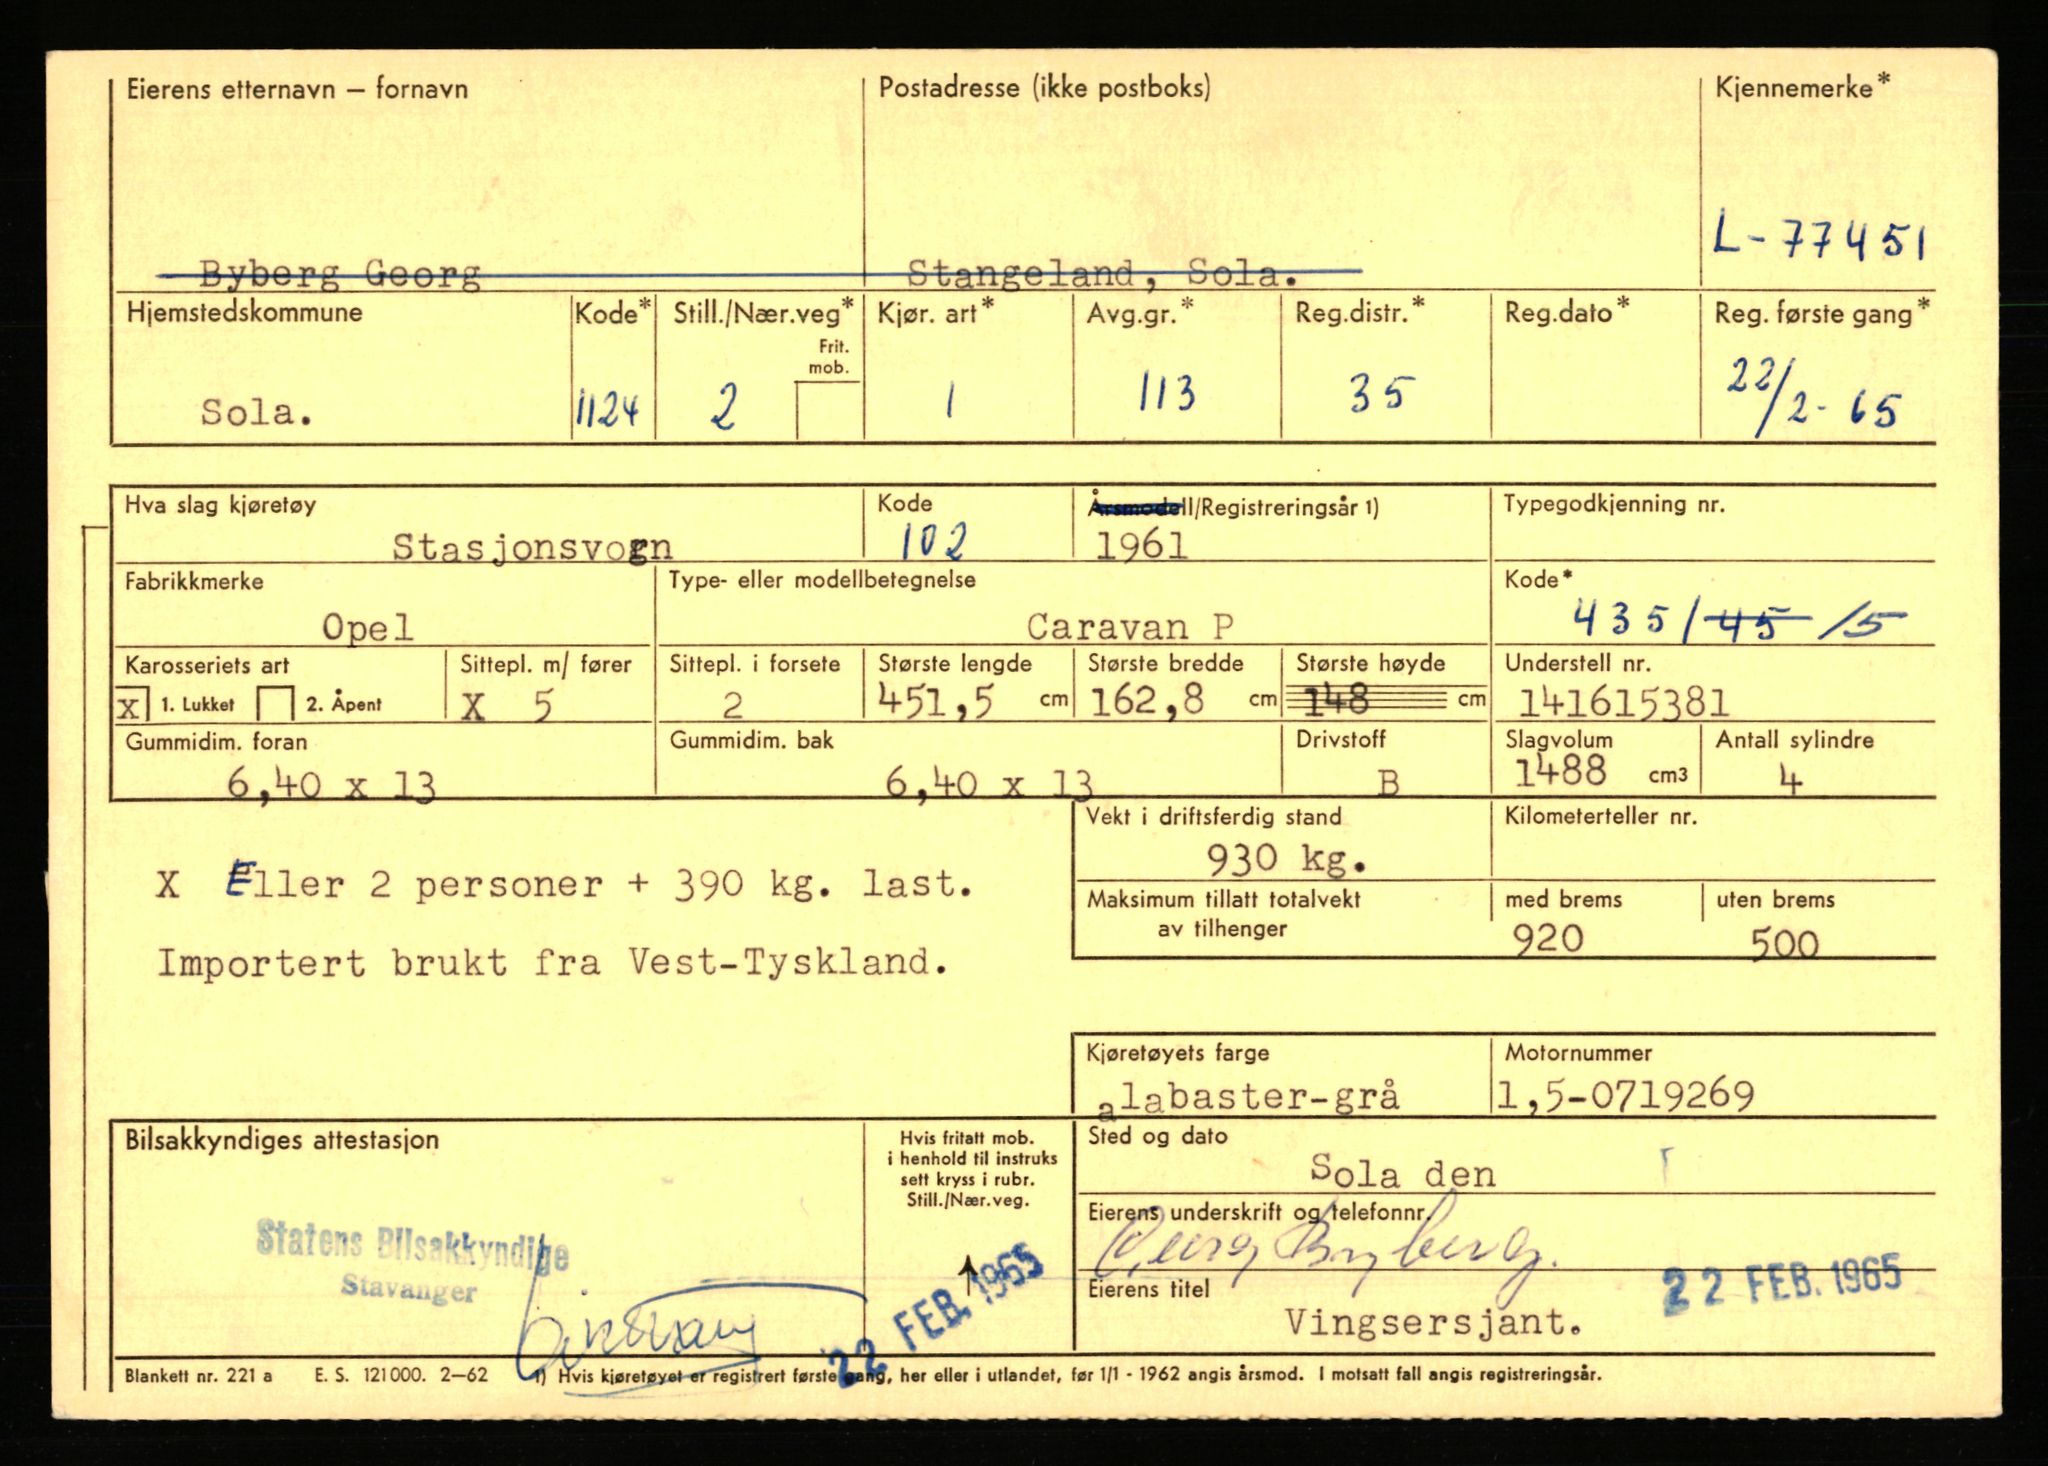 Eierens etternavn – fornavn Postadresse (ikke postboks) Kjennemerke*
L-77451
Byberg Georg Stangeland, Sola.
Hjemstedskommune Kode* Still./Nær.veg* Kjør. art* Avg.gr.* Reg.distr.* Reg.dato* Reg. første gang*
Frit.
mob.
Sola. 1124 2 1 113 35 22/2-65
Hva slag kjøretøy Kode Årsmodell/Registreringsår 1) Typegodkjenning nr.
Stasjonsvogn 102 1961
Fabrikkmerke Type- eller modellbetegnelse Kode*
Opel Caravan P 435/45/5
Karosseriets art Sittepl. m/ fører Sittepl. i forsete Største lengde Største bredde Største høyde Understell nr.
X 1. Lukket 2. Åpent X 5 2 451,5 cm 162,8 cm 148 cm 141615381
Gummidim. foran Gummidim. bak Drivstoff Slagvolum Antall sylindre
6,40 x 13 6,40 x 13 B 1488 cm3 4
Vekt i driftsferdig stand Kilometerteller nr.
930 kg.
X Eller 2 personer + 390 kg. last.
Maksimum tillatt totalvekt med brems uten brems
av tilhenger 920 500
Importert brukt fra Vest-Tyskland.
Kjøretøyets farge Motornummer
alabaster-grå 1,5-0719269
Bilsakkyndiges attestasjon Hvis fritatt mob. Sted og dato
i henhold til instruks
sett kryss i rubr.
Still./Nær.veg.
Sola den
Eierens underskrift og telefonnr.
Georg Byberg.
Statens Bilsakkyndige
Stavanger
22 FEB. 1965
Eierens titel 22 FEB. 1965
Vingsersjant.
Blankett nr. 221 a E. S. 121000. 2–62 1) Hvis kjøretøyet er registrert første gang, her eller i utlandet, før 1/1 - 1962 angis årsmod. I motsatt fall angis registreringsår.